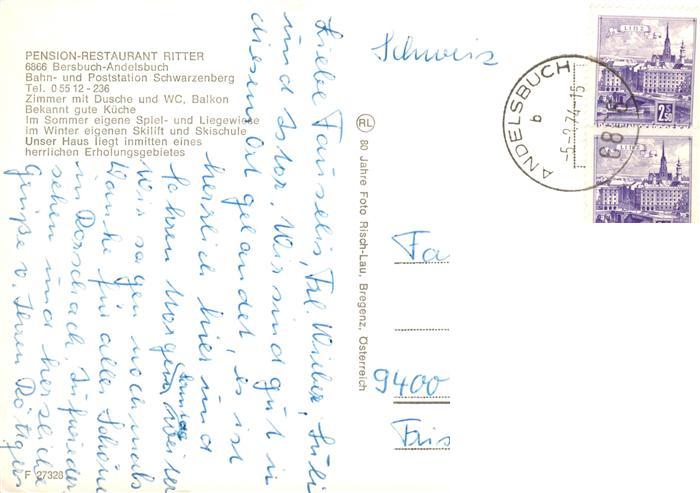 PENSION-RESTAURANT RITTER
6866 Bersbuch-Andelsbuch
Bahn- und Poststation Schwarzenberg
Tel. 0 55 12 - 236
Zimmer mit Dusche und WC, Balkon
Bekannt gute Küche
Im Sommer eigene Spiel- und Liegewiese
im Winter eigenen Skilift und Skischule
Unser Haus liegt inmitten eines
herrlichen Erholungsgebietes
Liebe Frl.
und Wir sind gut in
diesen Ort gelandet, es ist
herrlich hier und
fahren morgen weiter
Wir sagen nochmals
Danke für alles Schöne
in Rorschach,
sehen und herzliche
Grüße v. Ihren Röttgers
F 27328
RL 80 Jahre Foto Risch-Lau, Bregenz, Österreich
Schweiz
ANDELSBUCH
b
LINZ
2.50
LINZ
Fa
9400